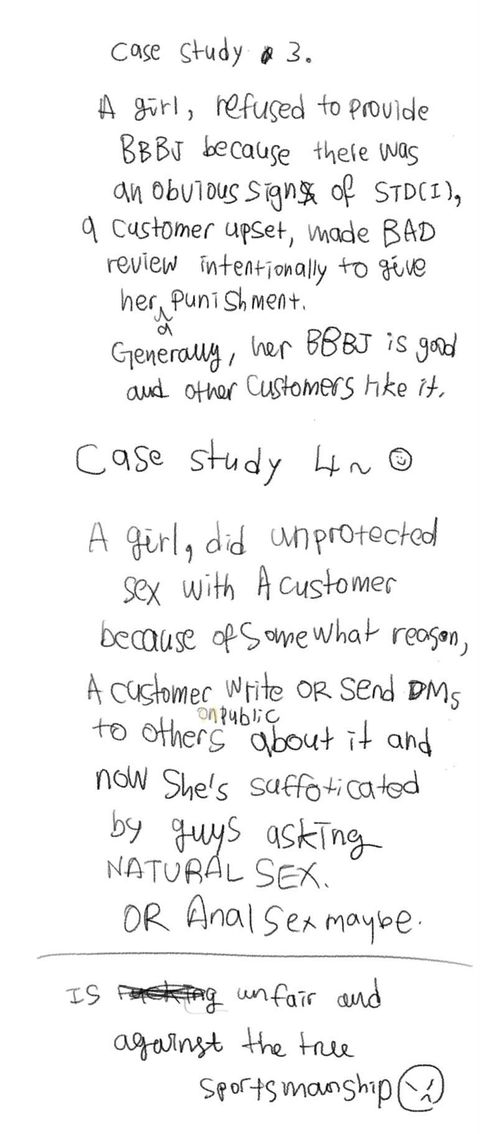 Case study 3.
A girl, refused to provide
BBBJ because there was
an obvious sign of STD(I),
a customer upset, made BAD
review intentionally to give
her a punishment.
Generally, her BBBJ is good
and other customers like it.
Case study 4~ ☺
A girl, did unprotected
sex with A customer
because of somewhat reason,
A customer write OR send DMs
on public
to others about it and
now she's suffoticated
by guys asking
NATURAL SEX.
OR Anal sex maybe.
IS unfair and
against the true
sportsmanship